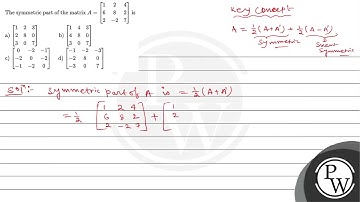 The symmetric part of the matrix A = [1 2 4
6 8 2
2 -2 7] is
a) [1 2 3
2 8 0
3 0 7]
b) [1 4 3
4 8 0
3 0 7]
c) [0 -2 -1
-2 0 -2
-1 -2 0]
d) [-1 -2 -3
-2 0 -2
-3 0 7]
Key Concept
A = 1/2 (A+A') + 1/2 (A-A')
Symmetric
Skew
Symmetric
Solⁿ:- Symmetric part of A is = 1/2 (A+A')
= 1/2 [1 2 4
6 8 2
2 -2 7] + [1
2
PW